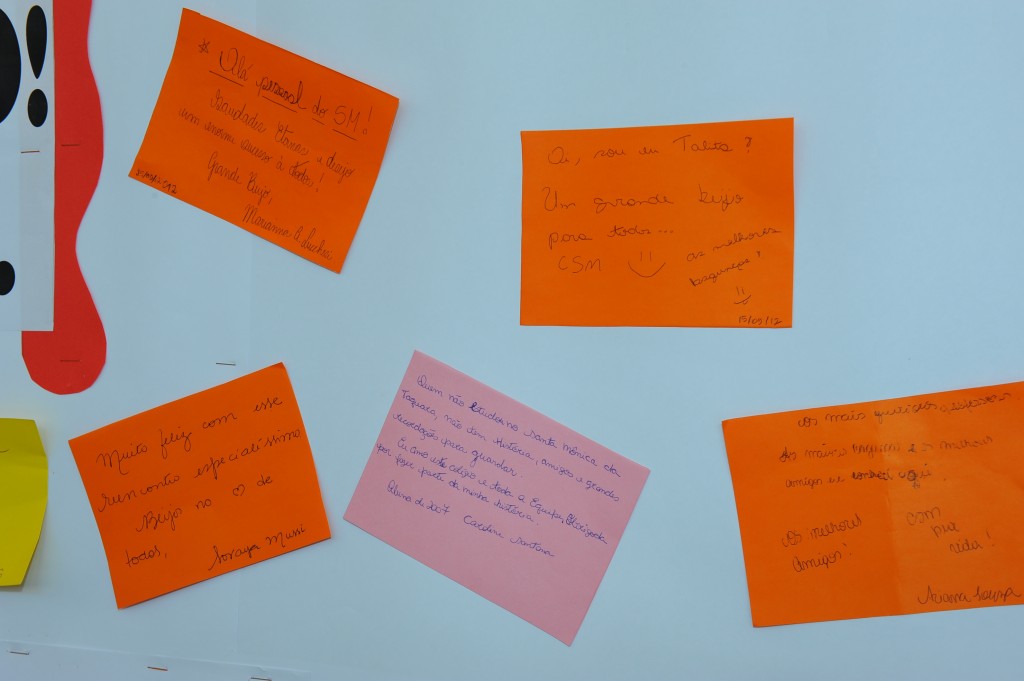 * Olá pessoal do SM!
Saudades Eternas e desejo
um enorme sucesso à todos!
Grande Beijo,
Marianna
Oi, sou eu Talita?
Um grande beijo
para todos...
CSM
as melhores
15/09/12
Muito feliz com esse
reencontro especialíssimo
Beijo no ♡ de
todos, Soraya Mussi
Quem não Estudou no Santa Mônica da
Taquara, não tem História, amigos e grandes
recordações para guardar.
Eu amo este colégio e toda a Equipe,
por fazer parte da minha história.
Aluna de 2007 Caroline Santana
Os mais queridos
Os mais e os melhores
amigos e aqui.
Os melhores CSM
Amigos! pra
vida!
Souza